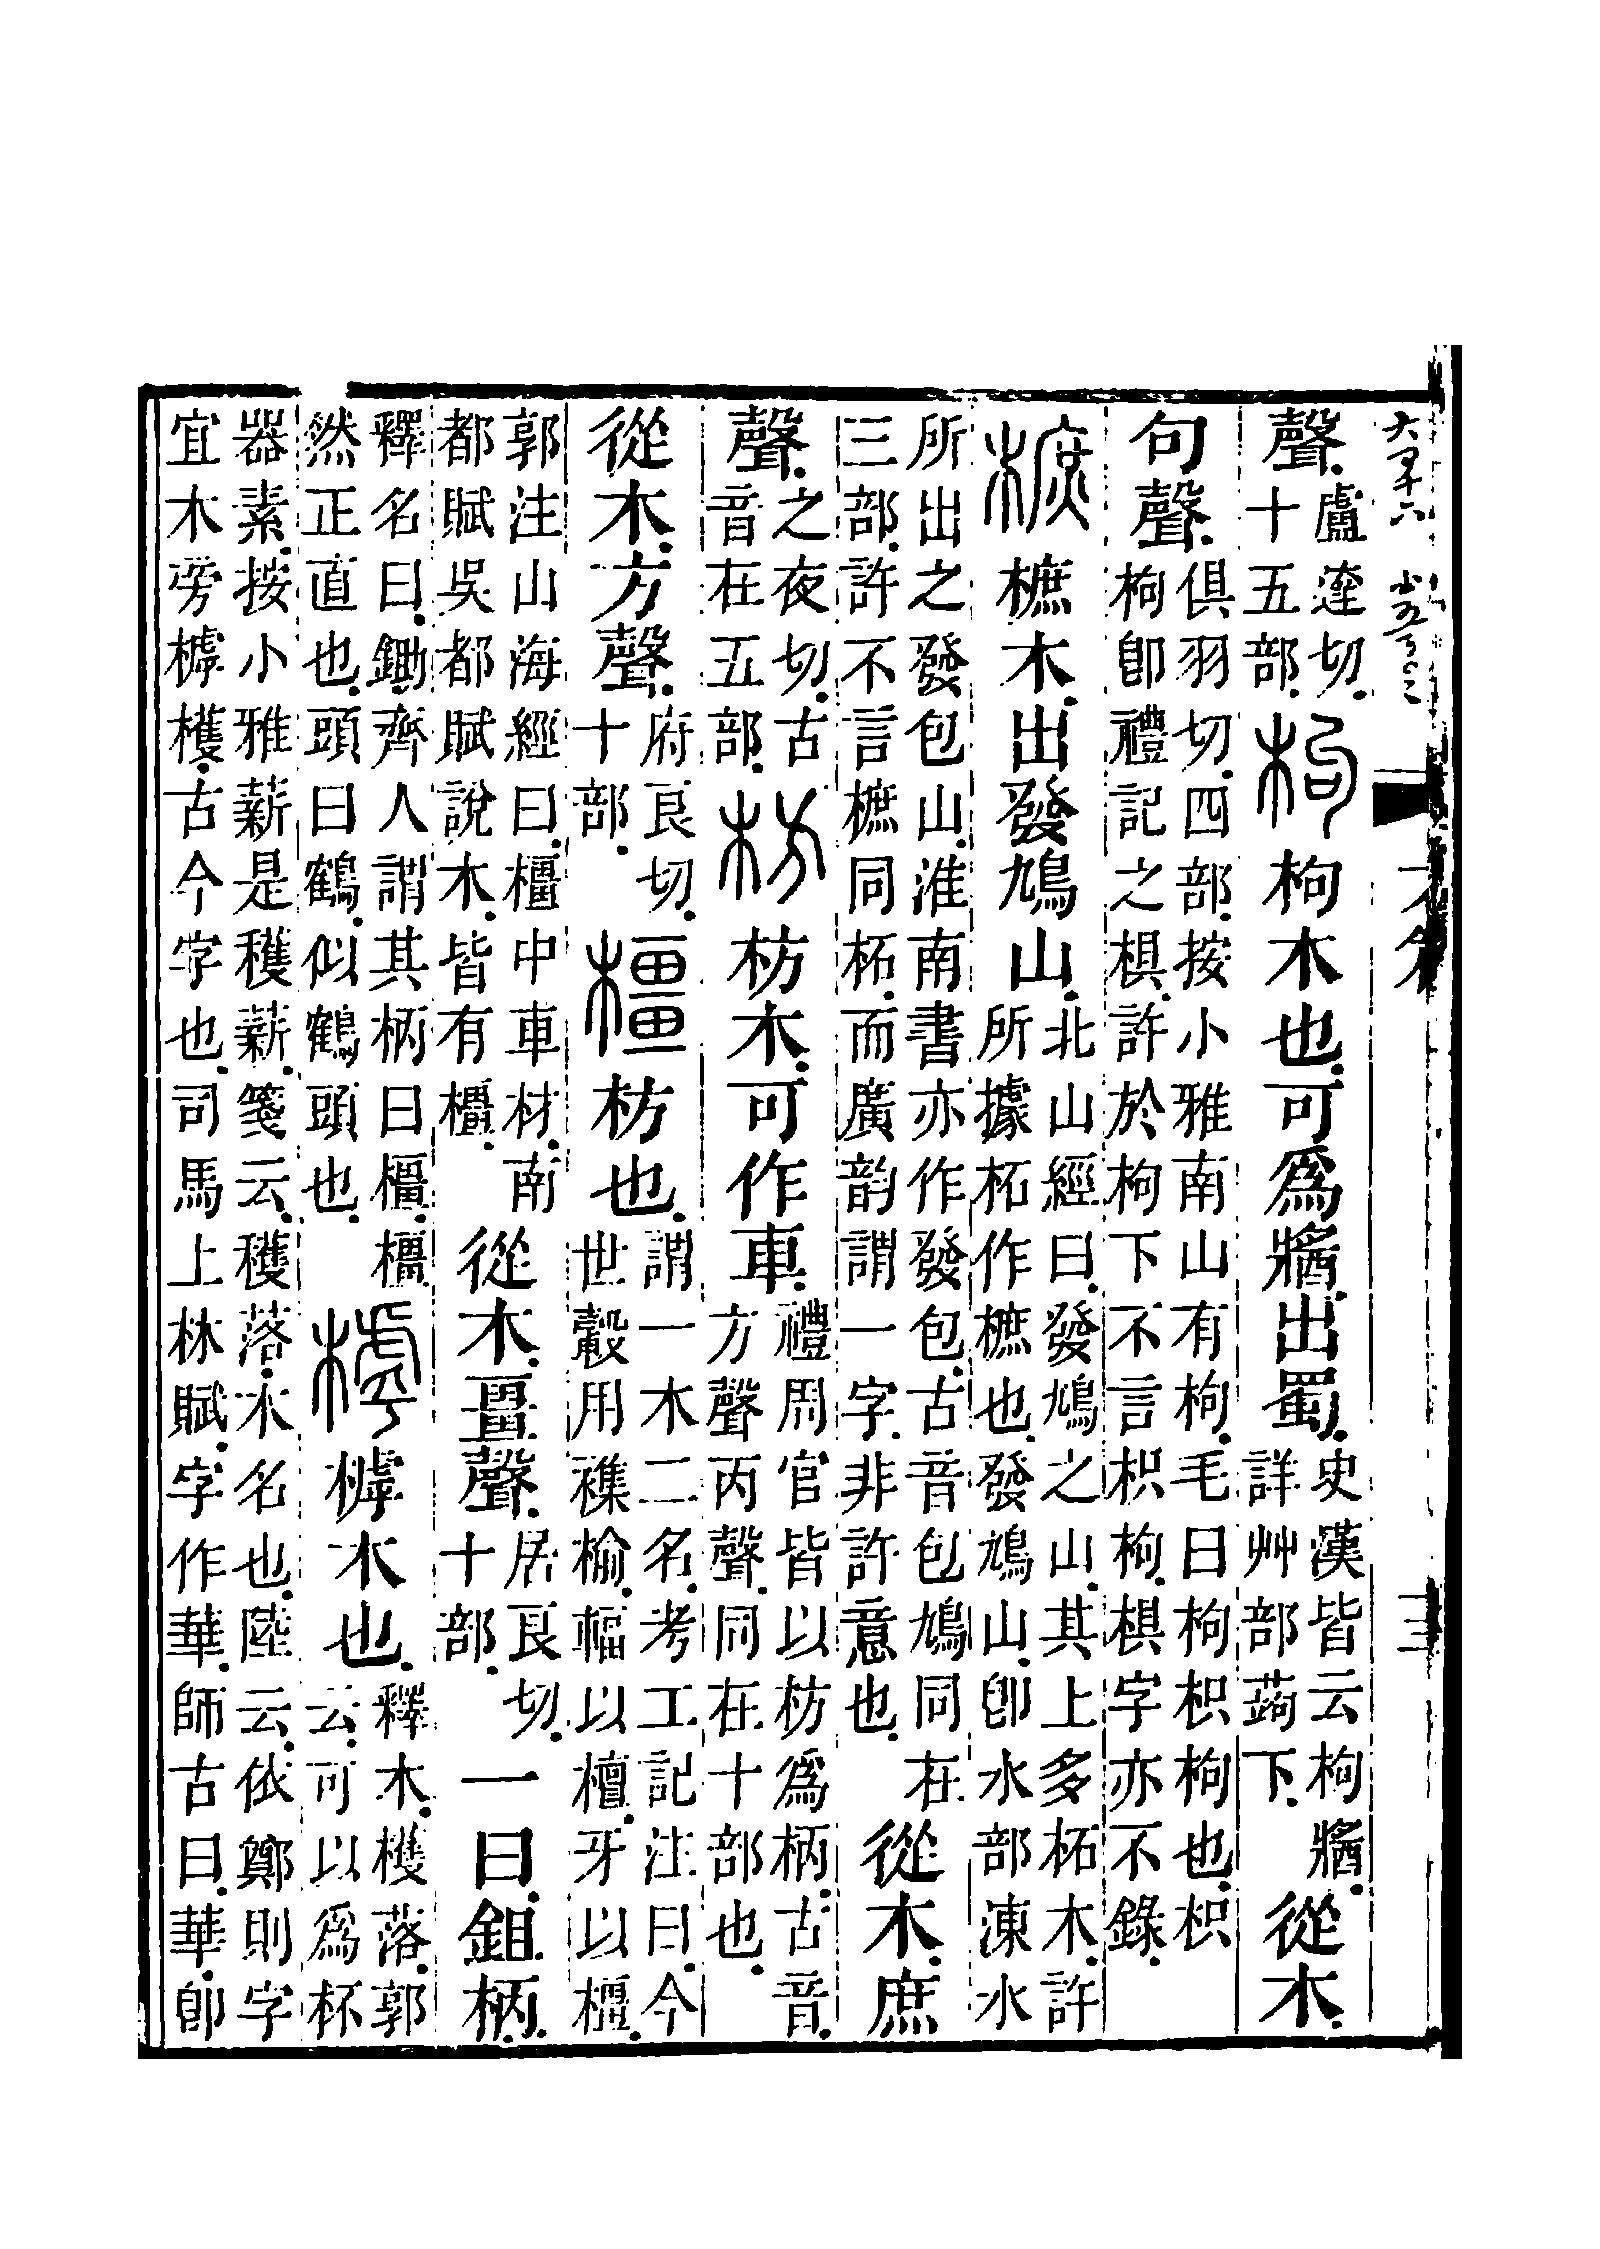 聲。盧達切。十五部。枸枸木也。可爲醬。出蜀。史漢皆云枸醬。詳艸部蒟下。從木。
句聲。俱羽切。四部。按小雅南山有枸。毛曰枸枳枸也。枳枸卽禮記之椇。許於枸下不言枳枸。椇字亦不錄。
樜樜木。出發鳩山。北山經曰。發鳩之山。其上多柘木。許所據柘作樜也。發鳩山。卽水部涷水
所出之發包山。淮南書亦作發包。古音包鳩同在三部。許不言樜同柘。而廣韵謂一字。非許意也。從木。庶
聲。之夜切。古音在五部。枋枋木。可作車。禮周官皆以枋爲柄。古音方聲丙聲。同在十部也。
從木。方聲。府良切。十部。橿枋也。謂一木二名。考工記注曰。今世轂用雜榆。輻以檀。牙以橿。
郭注山海經曰。橿中車材。南都賦吳都賦說木。皆有橿。從木。畺聲。居良切。十部。一曰。鉏柄。
釋名曰。鋤齊人謂其柄曰橿。橿然正直也。頭曰鶴。似鶴頭也。㯉㯉木也。釋木。檴落。郭云。可以爲杯
器素。按小雅薪是穫薪。箋云。穫落。木名也。陸云。依鄭則字宜木旁。㯉檴。古今字也。司馬上林賦。字作華。師古曰。華卽